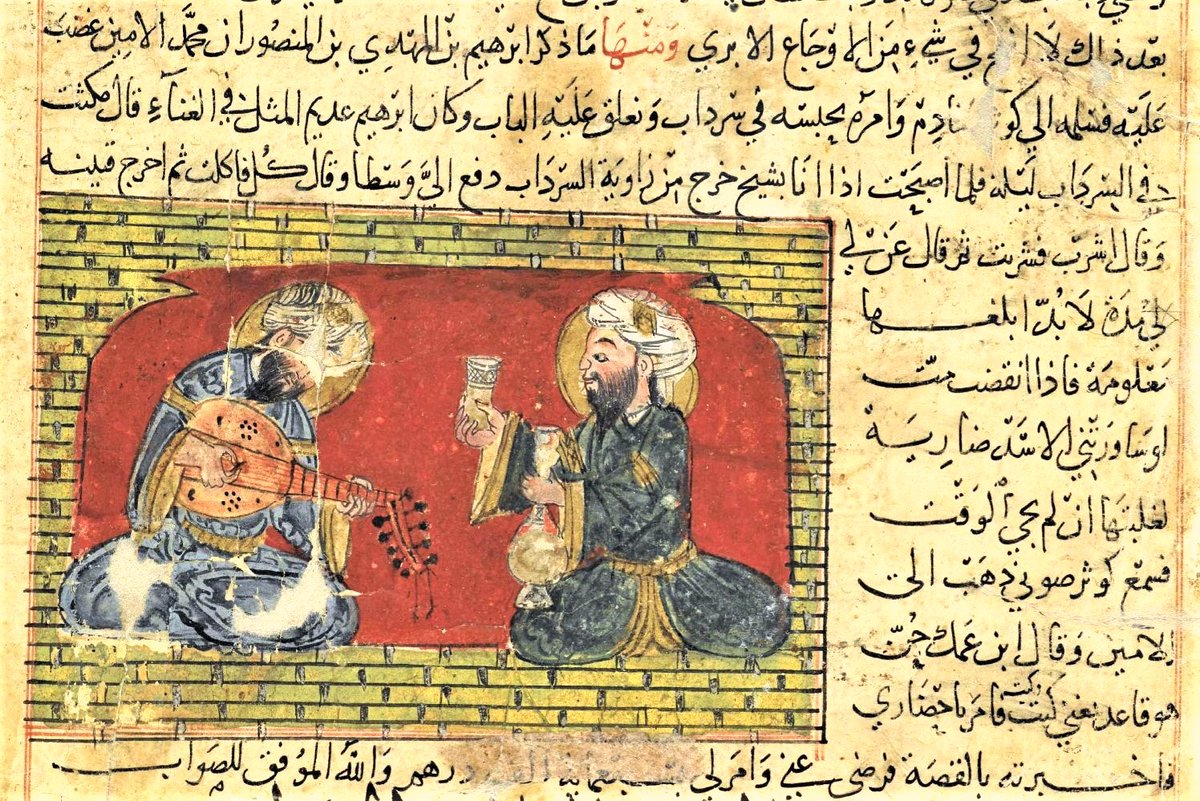 بعد ذلك لا انفع في شيء من الاوجاع الا بري ومنها ما ذكر ابرهيم بن المهدي بن المنصور ان محمد الامين غضب
عليه فسلمه الي كوثر خادمه وامره بحبسه في سرداب وتغلق عليه الباب وكان ابرهيم عديم المثل في الغناء قال فمكثت
في السرداب ليلة فلما اصبحت اذا انا بشيخ خرج من زاوية السرداب دفع اليّ وسطا وقال كُل فاكلت ثم اخرج قنينه
وقال اشرب فشربت ثم قال غن لي
لي مدة لا بُدّ ابلغها
معلومة فاذا انقضت مت
لو ساورتني الاسد ضارية
لغلبتها ان لم يجي الوقت
فسمع كوثر صوتي ذهب الى
الامين وقال ابن عمك جُنّ
هو قاعد يغني كيت وكيت فامر باحضاري
فاخبرته بالقصة فرضي عني وامر لي درهم والله الموفق للصواب